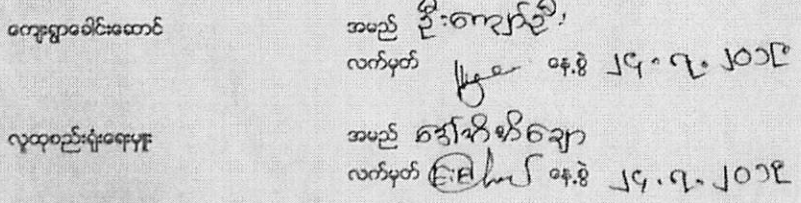 ကျေးရွာခေါင်းဆောင် အမည် ဦးကျော်ဦး
လက်မှတ် နေ့စွဲ ၂၄.၇.၂၀၁၉
လူထုစည်းရုံးရေးမှူး အမည် ဒေါ်
လက်မှတ် နေ့စွဲ ၂၄.၇.၂၀၁၉